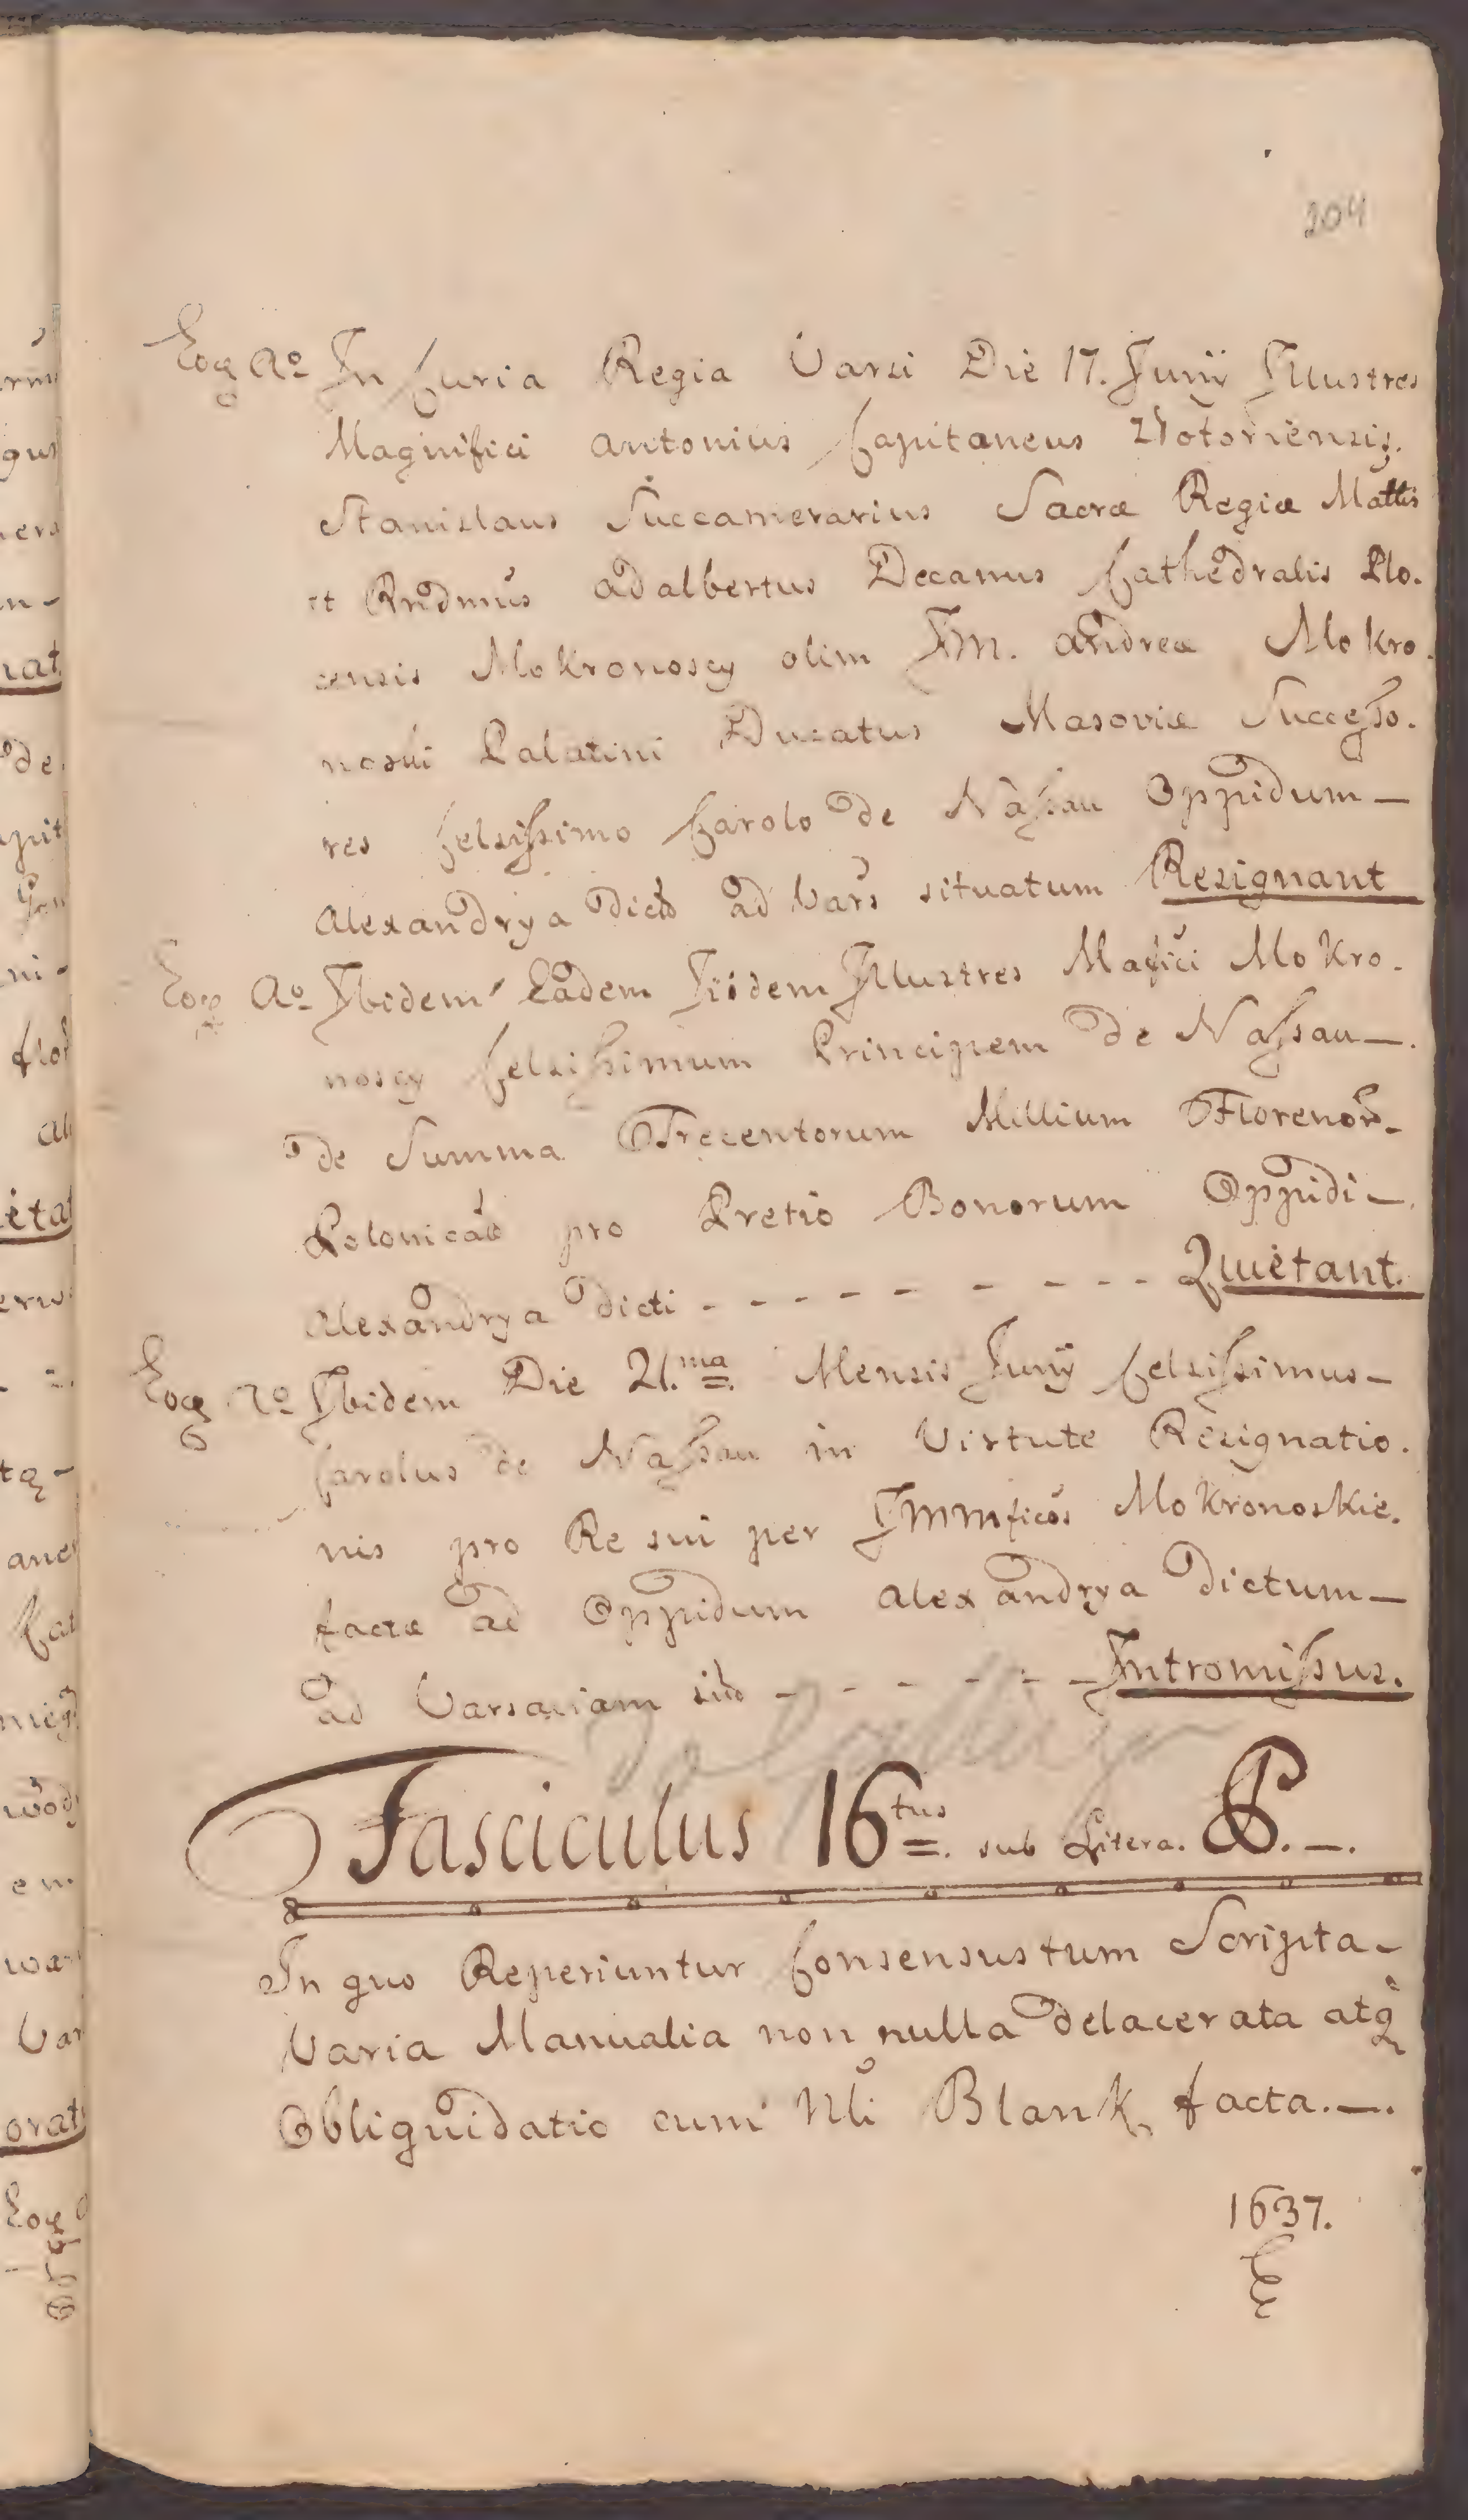 204
Eoq Ao In Curia Regia Varsi Die 17. Junij Illustres
Magnifici Antonius Capitaneus
Stanislaus Succamerarius Sacræ Regiæ Mattis
et Rndmus Adalbertus Decanus Cathedralis Plo.
censis Mokronoscy olim JM. Andreæ Mokro.
noski Palatini Ducatus Masoviæ Successo.
res Celsissimo Carolo de Nassau Oppidum —
Alexandrya dict ad Vars situatum Resignant
Eoq Ao Ibidem Eadem Iiidem Illustres Mafici Mokro.
noscy Celsissimum Principem de Nassau —.
de Summa Trecentorum Millium Florenor -
Polonical pro Pretio Bonorum Oppidi —.
Alexandrya dicti - - - - - - - - - Quietant.
Eoq Ao Ibidem Die 21.ma Mensis Junij Celsissimus —
Carolus de Nassau in Virtute Resignatio.
nis pro Re sui per Mokronoskie.
factæ ad Oppidum Alexandrya dictum —
ad Varsaviam sit - - - - - - Intromissus.
Fasciculus 16tus. sub Litera. P. —.
In quo Reperiuntur Consensus tum Scripta -
Varia Manualia non nulla delacerata atq
Obliquidatio cum Nli Blank facta. —.
1637.